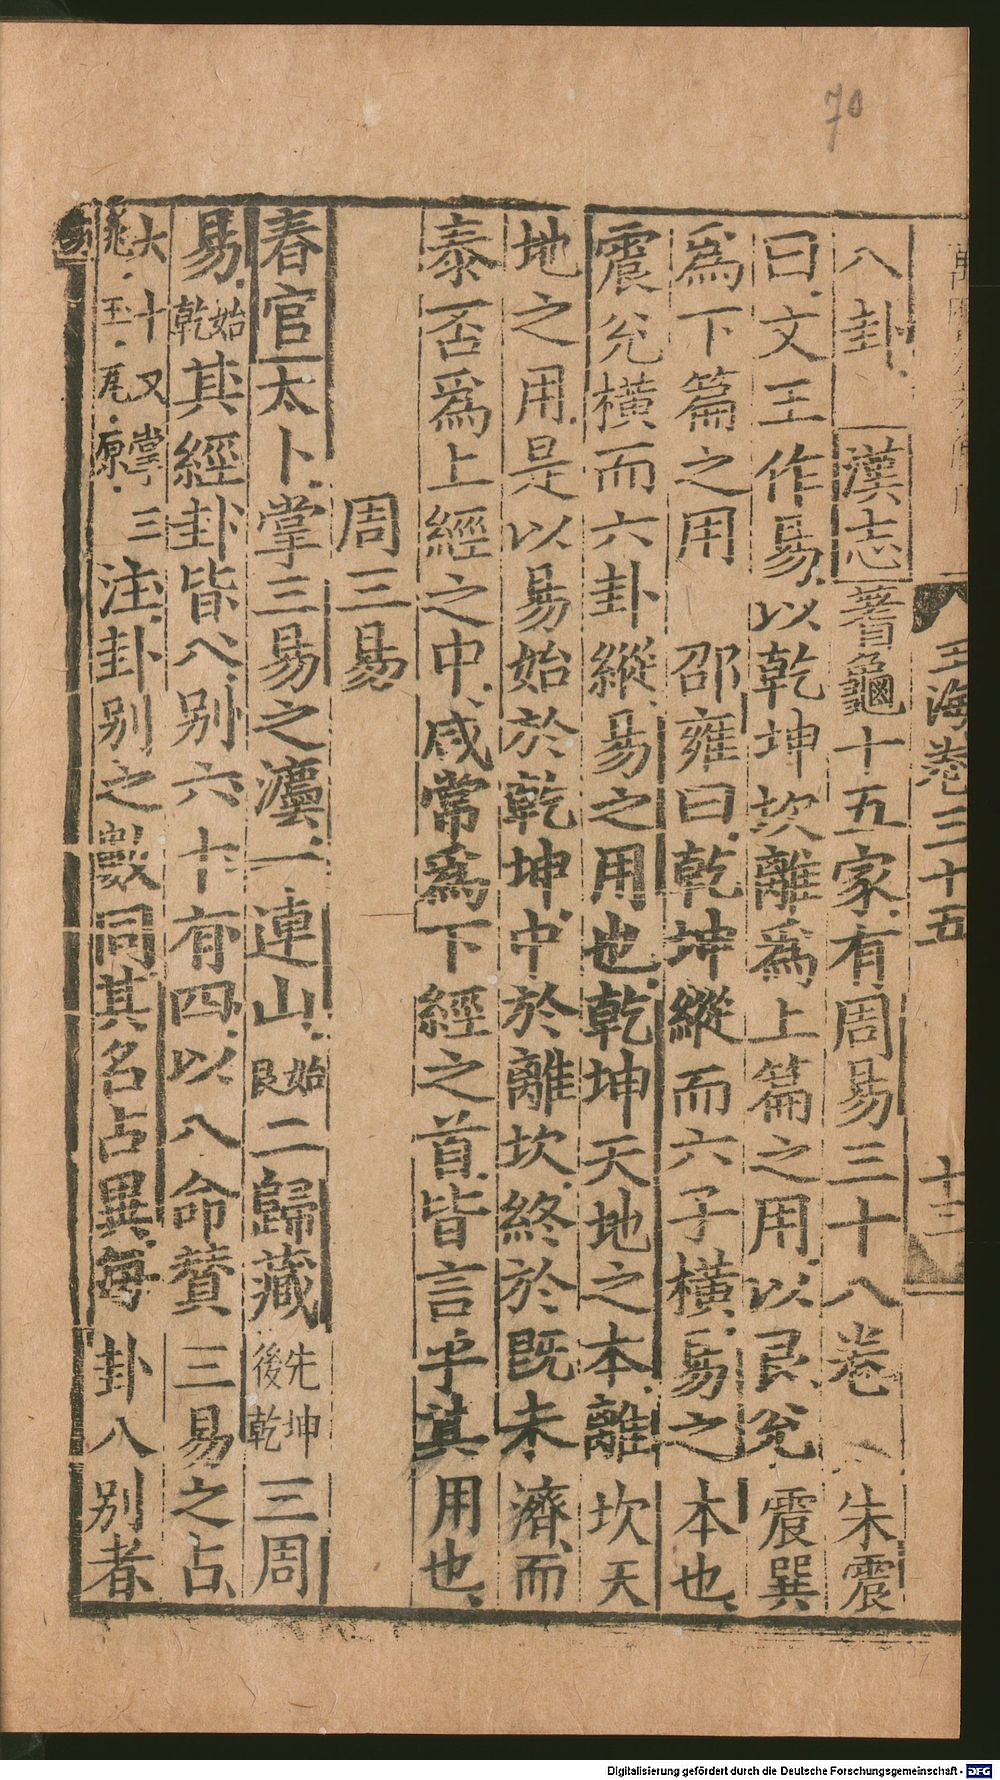 70
玉海卷三十五
十三
八卦漢志蓍龜十五家有周易三十八卷 朱震
曰文王作易以乾坤坎離爲上篇之用以艮兊震巽
爲下篇之用 邵雍曰乾坤縱而六子橫易之本也
震兊橫而六卦縱易之用也乾坤天地之本離坎天
地之用是以易始於乾坤中於離坎終於既未濟而
泰否爲上經之中咸常爲下經之首皆言乎其用也
周三易
春官太卜掌三易之灋一連山始艮二歸藏先坤後乾三周
易始乾其經卦皆八別六十有四以八命贊三易之占
大十又掌三兆玉瓦原注卦別之數同其名占異每卦八別者
Digitalisierung gefördert durch die Deutsche Forschungsgemeinschaft - DFG